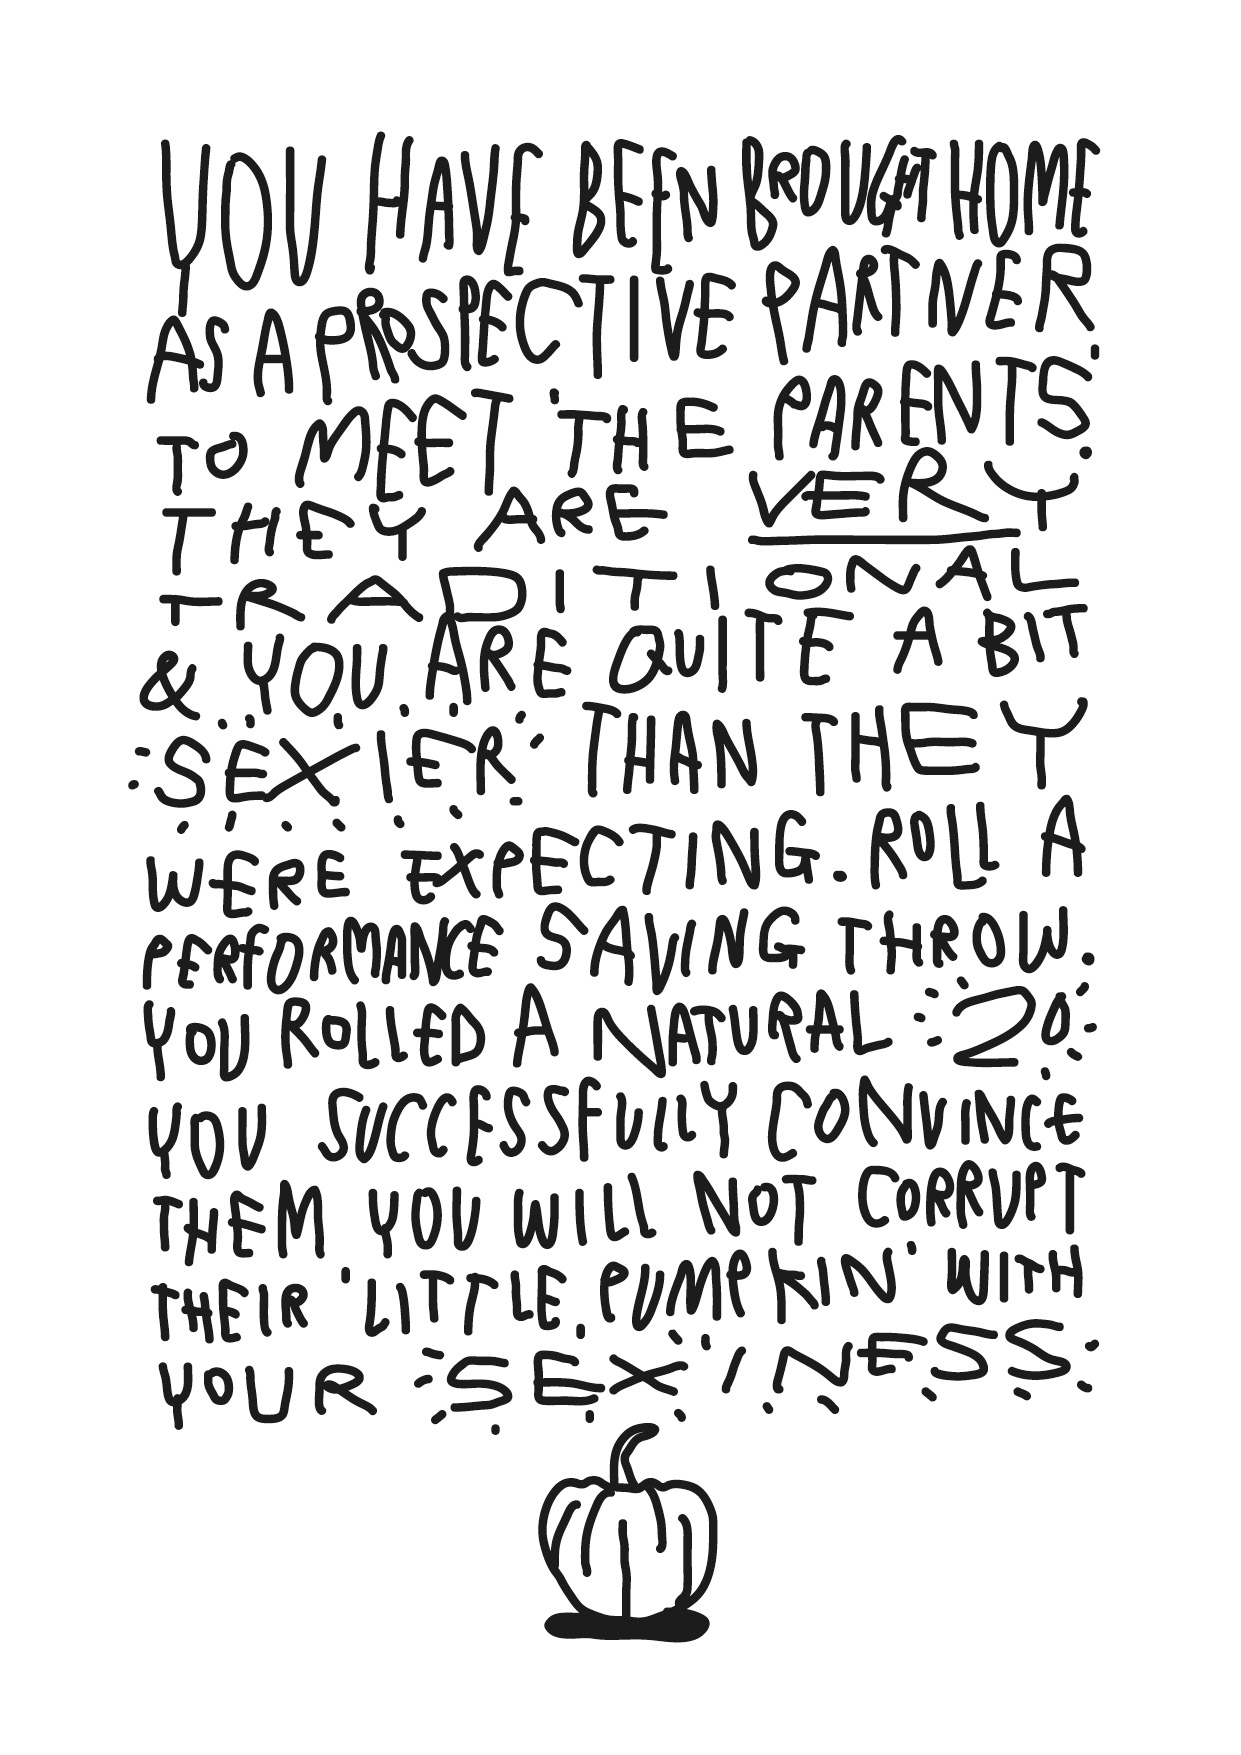 YOU HAVE BEEN BROUGHT HOME
AS A PROSPECTIVE PARTNER
TO MEET 'THE PARENTS'.
THEY ARE VERY
TRADITIONAL
& YOU ARE QUITE A BIT
SEXIER THAN THEY
WERE EXPECTING. ROLL A
PERFORMANCE SAVING THROW.
YOU ROLLED A NATURAL 20
YOU SUCCESSFULLY CONVINCE
THEM YOU WILL NOT CORRUPT
THEIR 'LITTLE PUMPKIN' WITH
YOUR SEXINESS